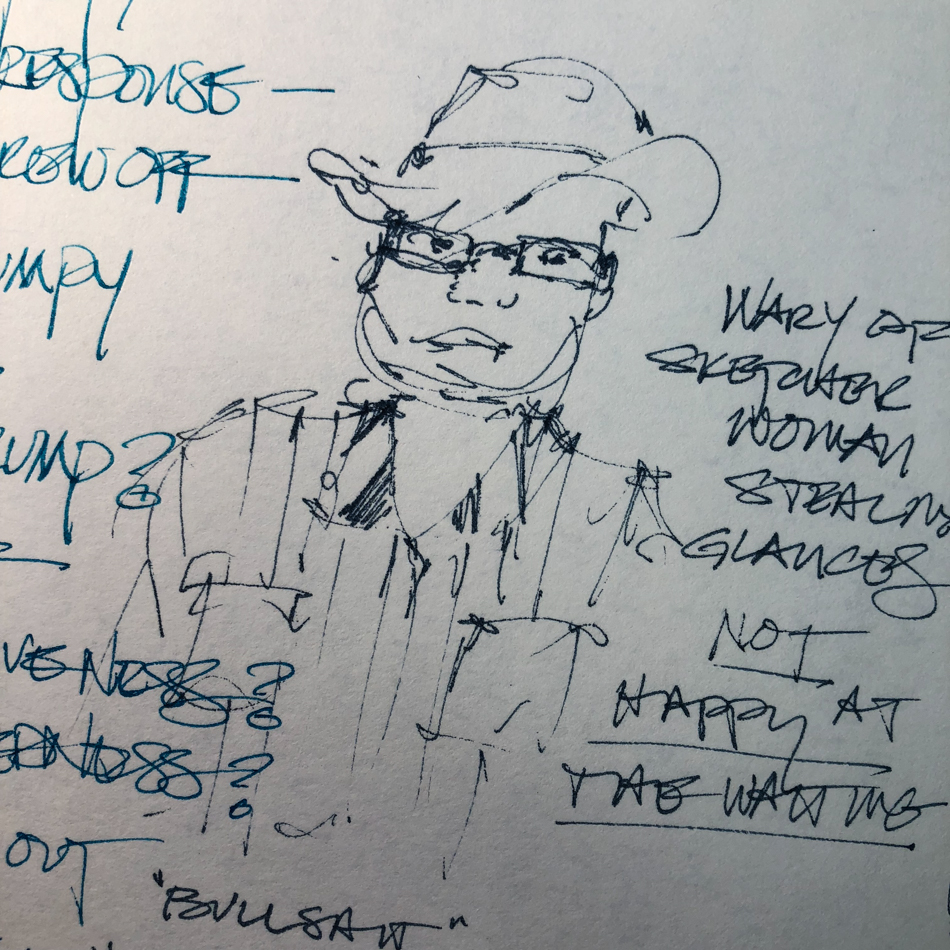 RESPONSE —
OFF
UMPY
UMP?
VENESS?
NESS?
OUT
WARY OF
SKETCHER
WOMAN
STEALING
GLANCES
NOT
HAPPY AT
THE WAITING
"BULLSHIT"